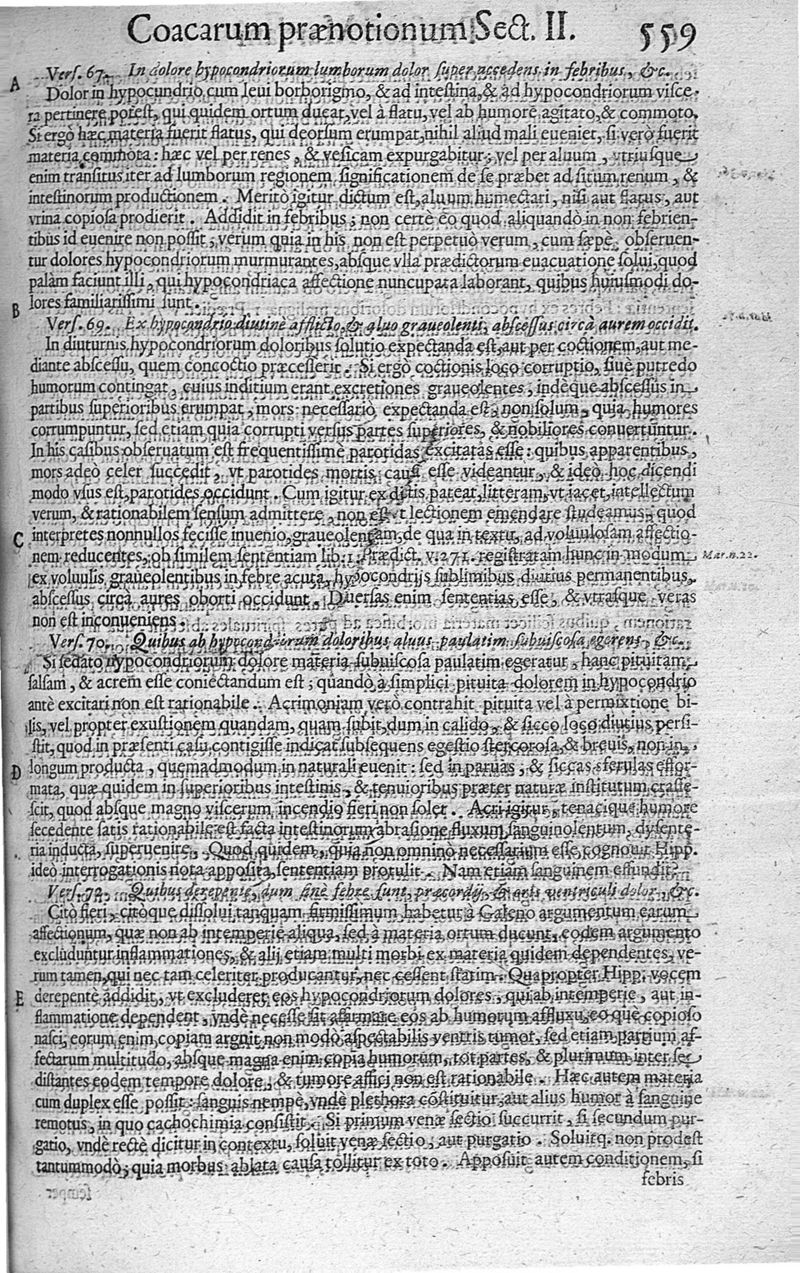 Coacarum prænotionum Sect. II. 559
A Vers. 67. In dolore hypocondriorum lumborum dolor superaccedens in febribus, &c.
Dolor in hypocundrio cum leui borborigmo, & ad intestina, & ad hypocondriorum visce-
ra pertinere potest, qui quidem ortum ducat, vel à flatu, vel ab humore agitato, & commoto.
Si ergò hæc materia fuerit flatus, qui deorsum erumpat, nihil aliud mali eueniet, si verò fuerit
materia commota: hæc vel per renes, & vesicam expurgabitur; vel per aluum, vtriusque
enim transitus iter ad lumborum regionem significationem de se præbet ad situm renum, &
intestinorum productionem. Meritò igitur dictum est, aluum humectari, nisi aut flatus, aut
vrina copiosa prodierit. Addidit in febribus; non certè eo quod aliquando in non febrien-
tibus id euenire non possit; verùm quia in his non est perpetuò verum, cum sæpè obseruen-
tur dolores hypocondriorum murmurantes, absque vlla prædictorum euacuatione solui, quod
palàm faciunt illi, qui hypocondriaca affectione nuncupata laborant, quibus huiusmodi do-
lores familiarissimi sunt.
B Vers. 69. Ex hypocondrio diutinè afflicto, & aluo graueolenti, abscessus circà aurem occidit.
In diuturnis hypocondriorum doloribus solutio expectanda est, aut per coctionem, aut me-
diante abscessu, quem concoctio præcesserit. Si ergò coctionis loco corruptio, siuè putredo
humorum contingat, cuius inditium erant excretiones graueolentes, indèque abscessus in
partibus superioribus erumpat, mors necessariò expectanda est; non solum, quia humores
corrumpuntur, sed etiam quia corrupti versus partes superiores, & nobiliores conuertuntur.
In his casibus obseruatum est frequentissimè parotidas excitatas esse: quibus apparentibus,
mors adeò celer succedit, vt parotides mortis causa esse videantur, & ideò hoc dicendi
modo vsus est, parotides occidunt. Cum igitur ex dictis pateat, litteram, vt iacet, intellectum
verum, & rationabilem sensum admittere, non est vt lectionem emendare studeamus, quod
C interpretes nonnullos fecisse inuenio, graueolentam, de qua in textu, ad voluulosam affectio-
nem reducentes, ob similem sententiam lib. 1. Prædict. v. 271. registratam hunc in modum Mar. n. 22.
ex voluulis graueolentibus in febre acuta, hypocondrijs sublimibus diutius permanentibus,
abscessus circà aures oborti occidunt. Diuersas enim sententias esse, & vtrasque veras
non est inconueniens.
Vers. 70. Quibus ab hypocondriorum doloribus aluus paulatim subuiscosa egerens, &c.
Si sedato hypocondriorum dolore materia subuiscosa paulatim egeratur, hanc pituitam,
salsam, & acrem esse coniectandum est; quandò à simplici pituita dolorem in hypocondrio
antè excitari non est rationabile. Acrimoniam verò contrahit pituita vel à permixtione bi-
lis, vel propter exustionem quandam, quam subit, dum in calido, & sicco loco diutius persi-
stit, quod in præsenti casu contigisse indicat subsequens egestio stercorosa, & breuis, non in
D longum producta, quemadmodum in naturali euenit: sed in paruas, & siccas ferulas effor-
mata, quæ quidem in superioribus intestinis, & tenuioribus præter naturæ institutum crasse-
scit, quod absque magno viscerum incendio fieri non solet. Acri igitur, tenacique humore
secedente satis rationabile est facta intestinorum abrasione fluxum sanguinolentum, dysente-
ria inducta, superuenire. Quod quidem, quia non omninò necessarium esse cognouit Hipp.
ideò interrogationis nota apposita, sententiam protulit. Nam etiam sanguinem effundit:
Vers. 72. Quibus derepentè, dum sinè febre sunt, præcordij, & oris ventriculi dolor, &c.
Citò fieri, citòque dissolui tanquam firmissimum habetur à Galeno argumentum earum
affectionum, quæ non ab intemperie aliqua, sed à materia ortum ducunt, eodem argumento
excluduntur inflammationes, & alij etiam multi morbi ex materia quidem dependentes, ve-
rum tamen, qui nec tam celeriter producantur, nec cessent statim. Quapropter Hipp. vocem
E derepentè addidit, vt excluderet eos hypocondriorum dolores, qui ab intemperie, aut in-
flammatione dependent, vndè necesse sit affirmare eos ab humorum affluxu, eo què copioso
nasci, eorum enim copiam arguit non modò aspectabilis ventris tumor, sed etiam partium af-
fectarum multitudo, absque magna enim copia humorum, tot partes, & plurimum inter se
distantes eodem tempore dolore, & tumore affici non est rationabile. Hæc autem materia
cum duplex esse possit: sanguis nempè, vndè plethora cōstituitur, aut alius humor à sanguine
remotus, in quo cachochimia consistit. Si primum venæ sectio succurrit, si secundum pur-
gatio, vndè rectè dicitur in contextu, soluit venæ sectio, aut purgatio. Soluitq. non prodest
tantummodò; quia morbus ablata causa tollitur ex toto. Apposuit autem conditionem, si
febris